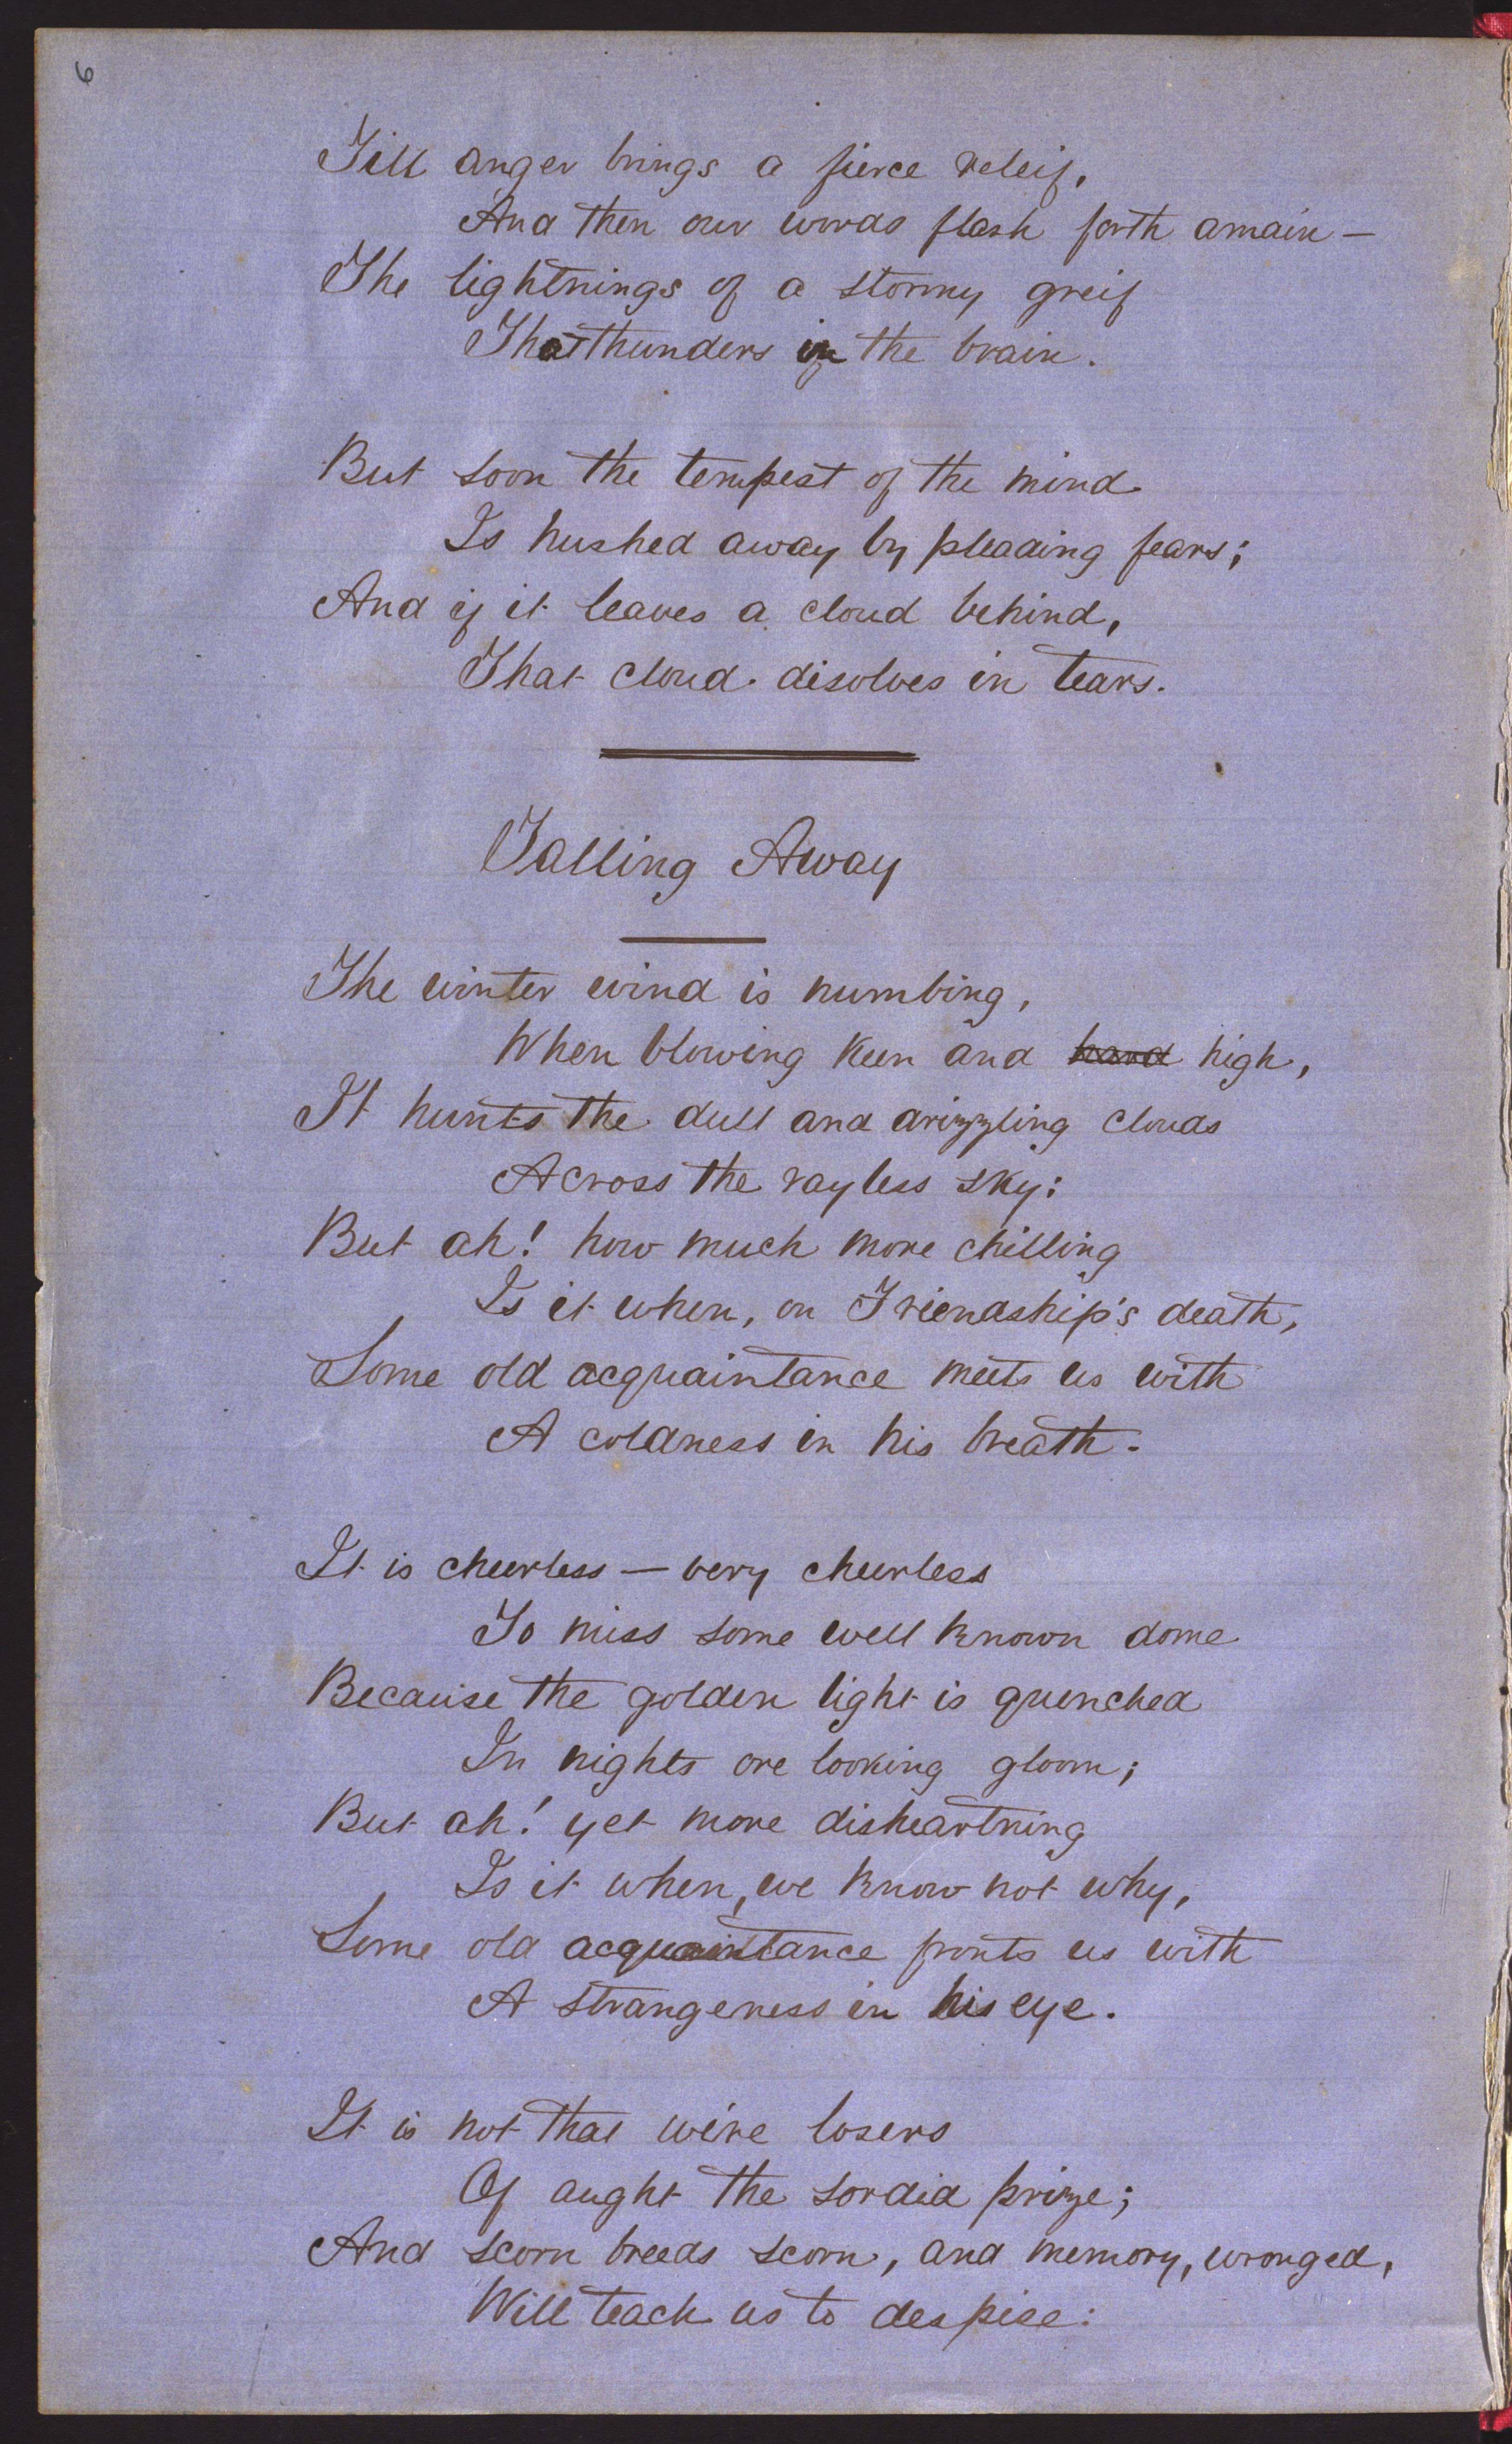 6
Till anger brings a fierce releif,
And then our words flash forth amain —
The lightnings of a stormy greif
That thunders in the brain.
But soon the tempest of the mind
Is hushed away by pleading fears;
And if it leaves a cloud behind,
That cloud disolves in tears.
Falling Away
The winter wind is numbing,
When blowing keen and hard high,
It hunts the dull and drizzling clouds
Across the rayless sky:
But ah! how much more chilling
Is it when, on Friendship's death,
Some old acquaintance meets us with
A coldness in his breath.
It is cheerless — very cheerless
To miss some well known dome
Because the golden light is quenched
In nights ore looking gloom;
But ah! yet more disheartning
Is it when, we know not why,
Some old acquaintance fronts us with
A strangeness in his eye.
It is not that we're losers
Of aught the sordid prize;
And scorn breeds scorn, and memory, wronged,
Will teach us to despise: